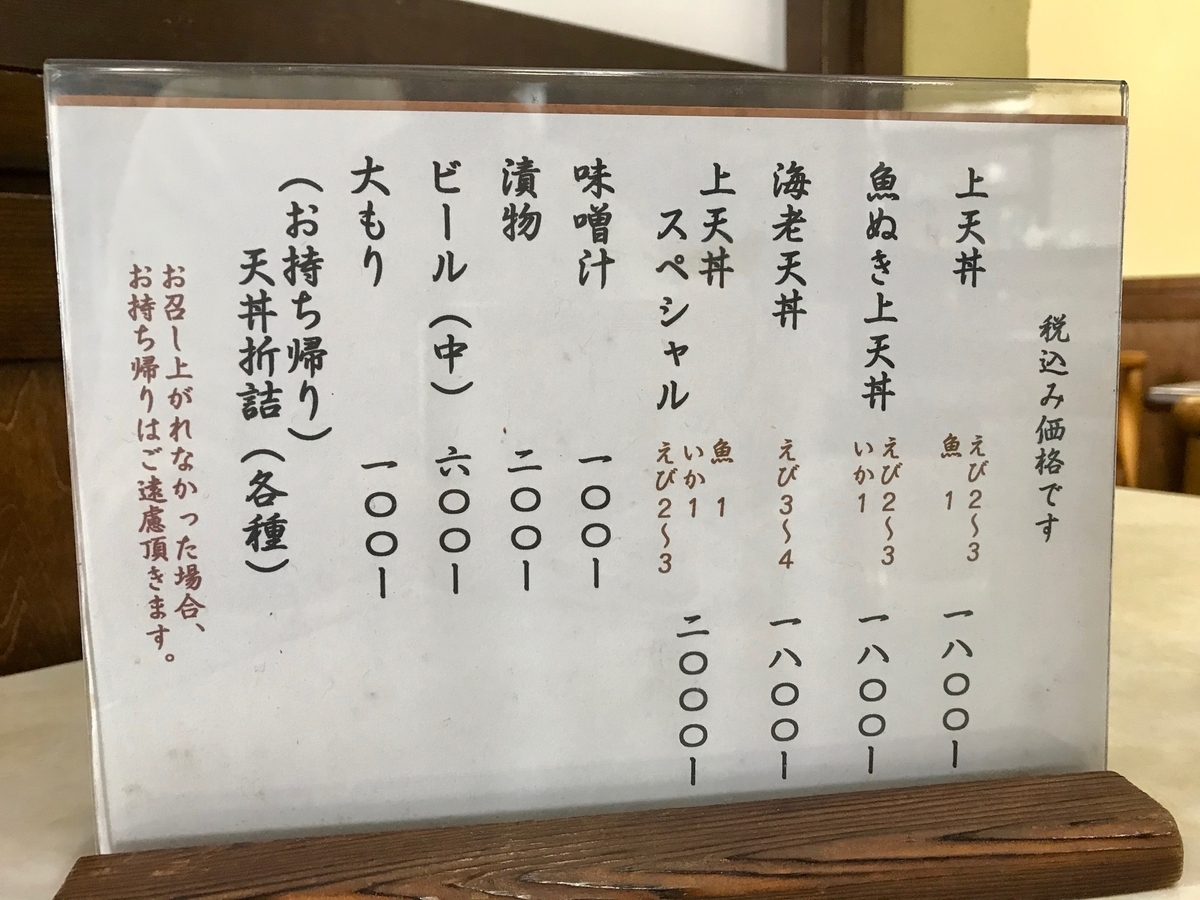 税込み価格です
上天丼 えび2〜3 魚 1 一八〇〇ー
魚ぬき上天丼 えび2〜3 いか1 一八〇〇ー
海老天丼 えび3〜4 一八〇〇ー
上天丼
スペシャル 魚 1 いか1 えび2〜3 二〇〇〇ー
味噌汁 一〇〇ー
漬物 二〇〇ー
ビール（中） 六〇〇ー
大もり 一〇〇ー
（お持ち帰り）
天丼折詰（各種）
お召し上がれなかった場合、
お持ち帰りはご遠慮頂きます。